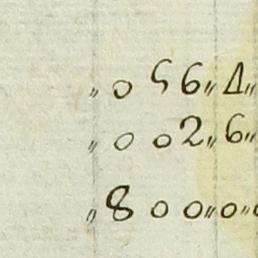 〃 0 5 6 〃 4 〃
〃 0 0 2 〃 6 〃
〃 8 0 0 〃 0 〃 0